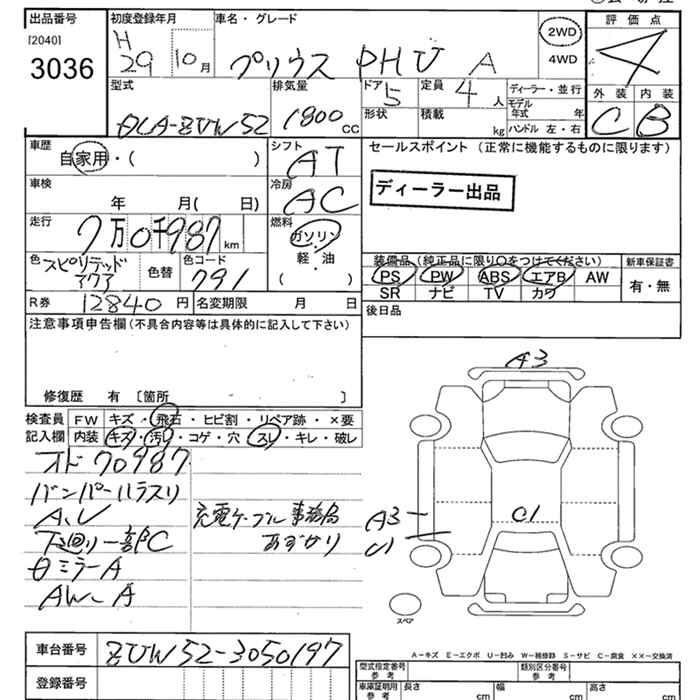 出品番号 初度登録年月 車名・グレード 評価点
[2040] H 2WD
3036 29 10月 プリウス PHV A 4WD 4
型式 排気量 ドア 定員 ディーラー・並行 外装 内装
DLA-ZVW52 1800CC 5 4人 モデル年式 年 C B
形状 積載 kg ハンドル 左・右
車歴 シフト セールスポイント (正常に機能するものに限ります)
自家用・( ) AT
車検 冷房 ディーラー出品
年 月( 日) AC
走行 燃料
7万0千987km ガソリン
軽・油
( )
色 色替 色コード 装備品 (純正品に限り○をつけてください) 新車保証書
スピリテッドアクア 791 PS PW ABS エアB AW 有・無
SR ナビ TV カワ
R券 12840円 名変期限 月 日 後日品
注意事項申告欄(不具合内容等は具体的に記入して下さい)
修復歴 有 [箇所 ]
A3
検査員 FW キズ・飛石・ヒビ割・リペア跡・×要
記入欄 内装 キズ・汚れ・コゲ・穴・スレ・キレ・破レ
オド70987
バンパーハラスリ
A、U 充電ケーブル事務局 A3 C1
下廻り一部C あずかり C1
日ミラーA
AW-A
スペア
A-キズ E-エクボ U-凹み W-補修跡 S-サビ C-腐食 ××-交換済
車台番号 ZVW52-3050197
型式指定番号 参考 類別区分番号 参考
登録番号 車庫証明用 参考 長さ cm 幅 cm 高さ cm